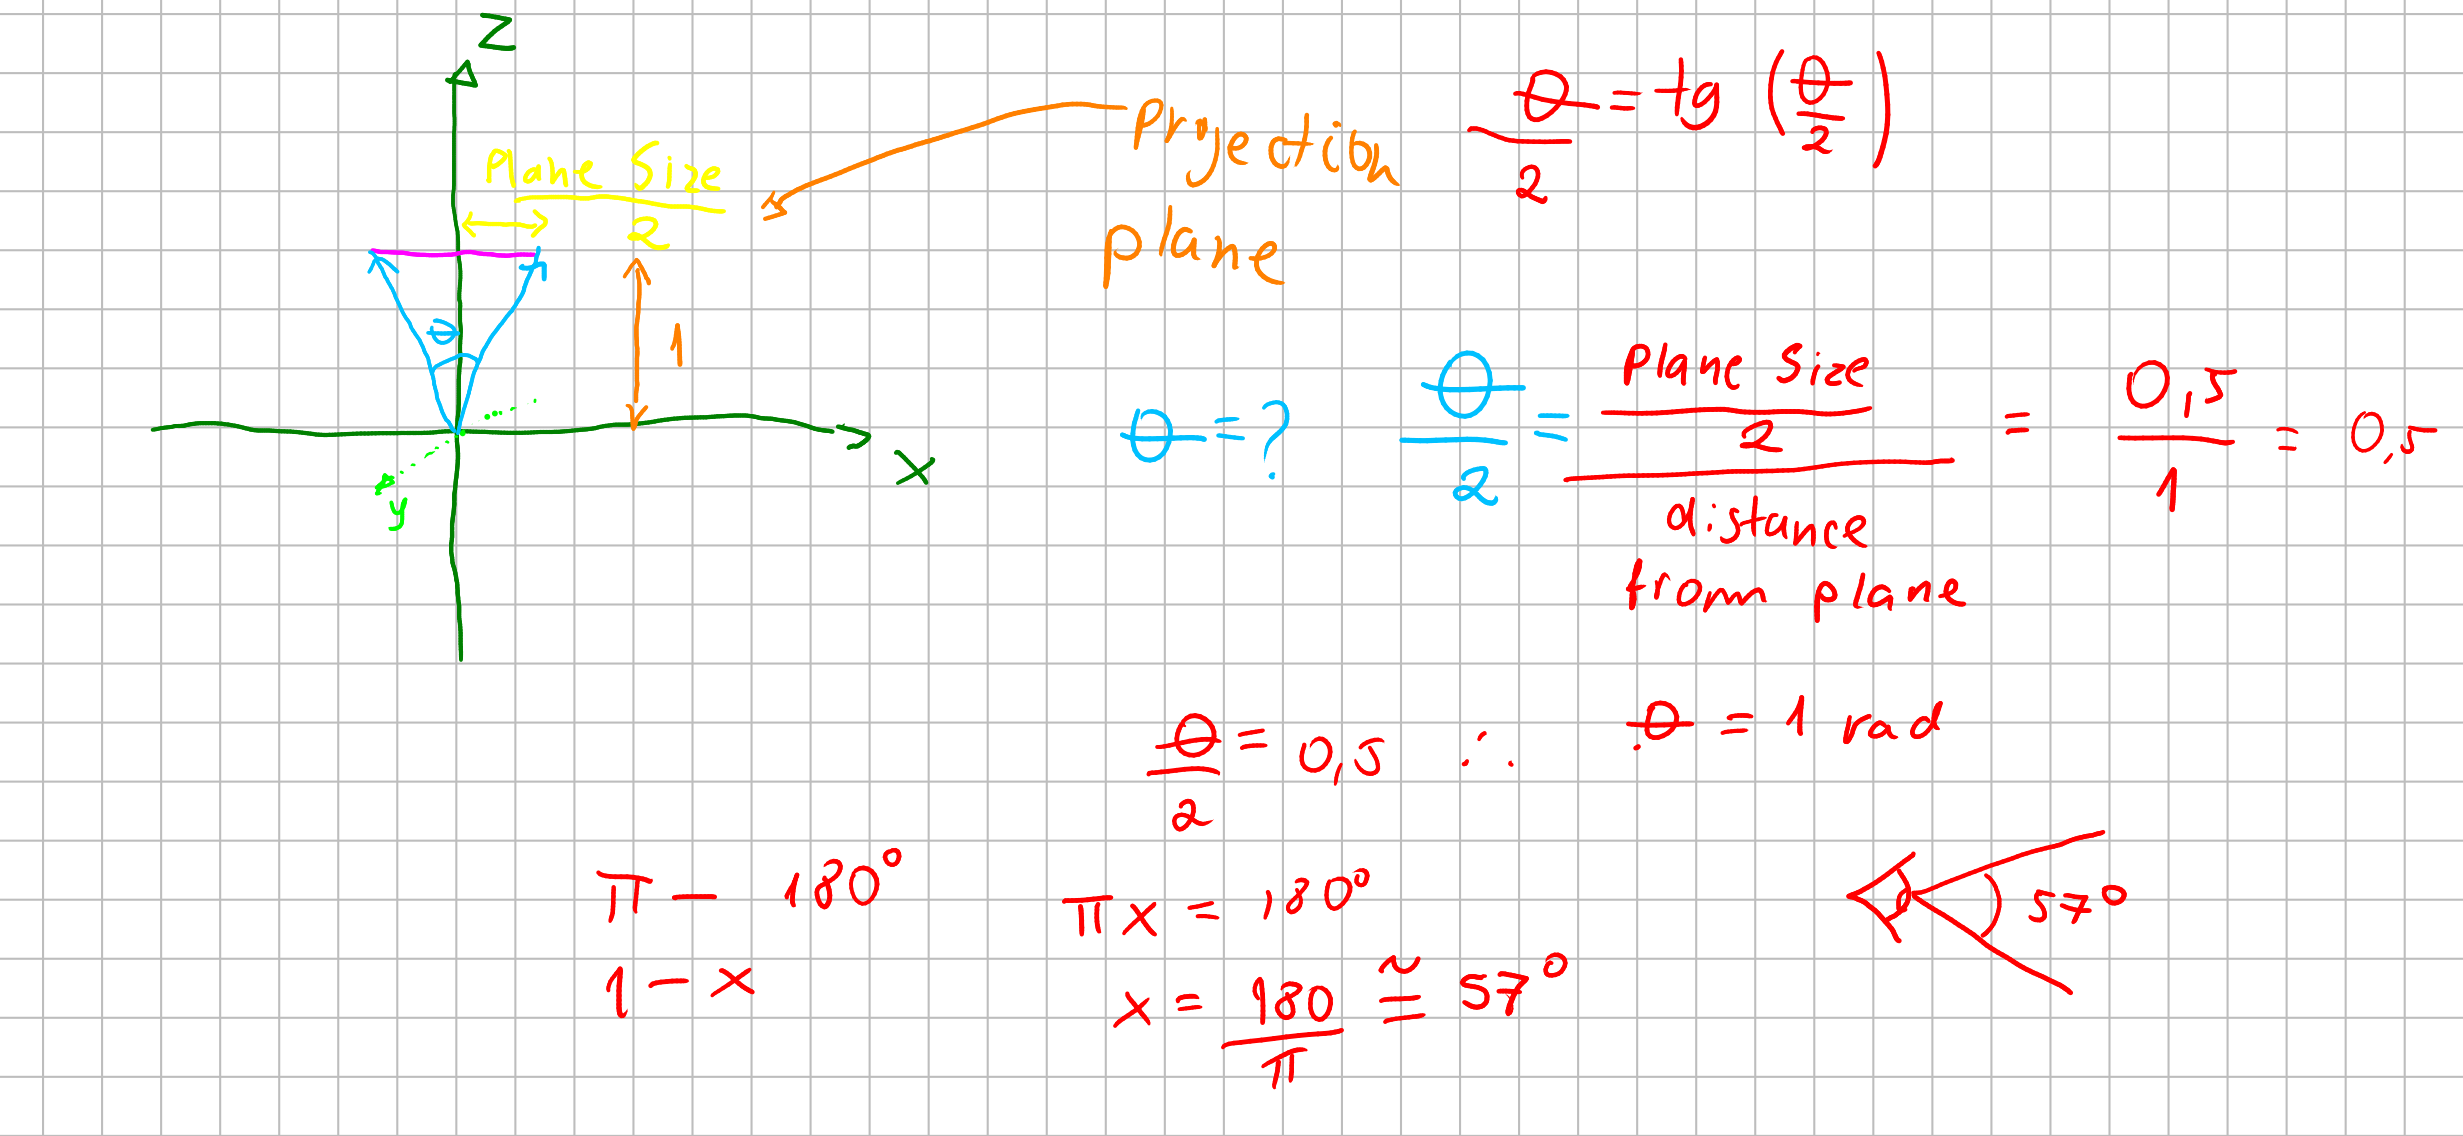 Z
Plane Size
2
Projection
plane
θ/2 = tg (θ/2)
θ
1
X
y
θ = ?
θ/2 = (Plane Size/2)/(distance from plane) = 0,5/1 = 0,5
θ/2 = 0,5 ∴ θ = 1 rad
π — 180°
1 — x
πx = 180°
x = 180/π ≅ 57°
57°